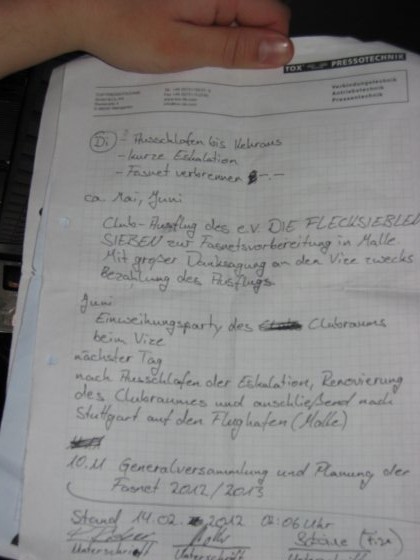 TOX PRESSOTECHNIK
Verbindungstechnik
Antriebstechnik
Pressentechnik
Di - Auschlafen bis Kehraus
- kurze Eskalation
- Fasnet verbrennen
ca. Mai, Juni
Club-Ausflug des e.V. DIE FLECKSIEBLEN
SIEBEN zur Fasnetsvorbereitung in Malle
Mit großer Danksagung an den Vize zwecks
Bezahlung des Ausflugs.
Juni
Einweihungsparty des Clubraums
beim Vize
nächster Tag
nach Ausschlafen der Eskalation, Renovierung
des Clubraumes und anschließend nach
Stuttgart auf den Flughafen (Malle)
10.11 Generalversammlung und Planung der
Fasnet 2012/2013
Stand 14.02. 2012 02:06 Uhr
(Vize)
Unterschrift Unterschrift Unterschrift